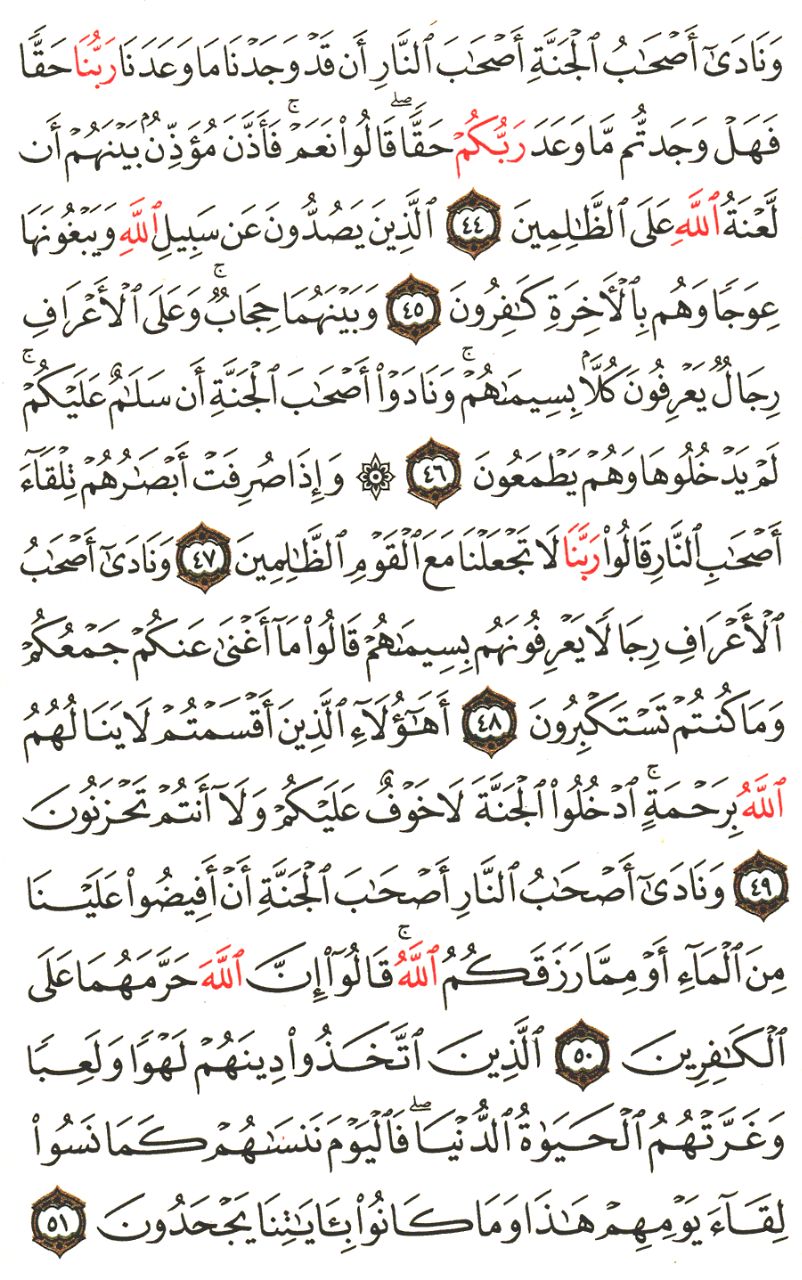 وَنَادَىٰٓ أَصْحَٰبُ ٱلْجَنَّةِ أَصْحَٰبَ ٱلنَّارِ أَن قَدْ وَجَدْنَا مَا وَعَدَنَا رَبُّنَا حَقًّا
فَهَلْ وَجَدتُّم مَّا وَعَدَ رَبُّكُمْ حَقًّا ۖ قَالُوا۟ نَعَمْ ۚ فَأَذَّنَ مُؤَذِّنٌۢ بَيْنَهُمْ أَن
لَّعْنَةُ ٱللَّهِ عَلَى ٱلظَّٰلِمِينَ ٤٤ ٱلَّذِينَ يَصُدُّونَ عَن سَبِيلِ ٱللَّهِ وَيَبْغُونَهَا
عِوَجًا وَهُم بِٱلْأَخِرَةِ كَٰفِرُونَ ٤٥ وَبَيْنَهُمَا حِجَابٌ ۚ وَعَلَى ٱلْأَعْرَافِ
رِجَالٌ يَعْرِفُونَ كُلًّۢا بِسِيمَىٰهُمْ ۚ وَنَادَوْا۟ أَصْحَٰبَ ٱلْجَنَّةِ أَن سَلَٰمٌ عَلَيْكُمْ ۚ
لَمْ يَدْخُلُوهَا وَهُمْ يَطْمَعُونَ ٤٦ ۞ وَإِذَا صُرِفَتْ أَبْصَٰرُهُمْ تِلْقَآءَ
أَصْحَٰبِ ٱلنَّارِ قَالُوا۟ رَبَّنَا لَا تَجْعَلْنَا مَعَ ٱلْقَوْمِ ٱلظَّٰلِمِينَ ٤٧ وَنَادَىٰٓ أَصْحَٰبُ
ٱلْأَعْرَافِ رِجَالًا يَعْرِفُونَهُم بِسِيمَىٰهُمْ قَالُوا۟ مَآ أَغْنَىٰ عَنكُمْ جَمْعُكُمْ
وَمَا كُنتُمْ تَسْتَكْبِرُونَ ٤٨ أَهَٰٓؤُلَآءِ ٱلَّذِينَ أَقْسَمْتُمْ لَا يَنَالُهُمُ
ٱللَّهُ بِرَحْمَةٍ ۚ ٱدْخُلُوا۟ ٱلْجَنَّةَ لَا خَوْفٌ عَلَيْكُمْ وَلَآ أَنتُمْ تَحْزَنُونَ
٤٩ وَنَادَىٰٓ أَصْحَٰبُ ٱلنَّارِ أَصْحَٰبَ ٱلْجَنَّةِ أَنْ أَفِيضُوا۟ عَلَيْنَا
مِنَ ٱلْمَآءِ أَوْ مِمَّا رَزَقَكُمُ ٱللَّهُ ۚ قَالُوٓا۟ إِنَّ ٱللَّهَ حَرَّمَهُمَا عَلَى
ٱلْكَٰفِرِينَ ٥٠ ٱلَّذِينَ ٱتَّخَذُوا۟ دِينَهُمْ لَهْوًا وَلَعِبًا
وَغَرَّتْهُمُ ٱلْحَيَوٰةُ ٱلدُّنْيَا ۖ فَٱلْيَوْمَ نَنسَىٰهُمْ كَمَا نَسُوا۟
لِقَآءَ يَوْمِهِمْ هَٰذَا وَمَا كَانُوا۟ بِـَٔايَٰتِنَا يَجْحَدُونَ ٥١